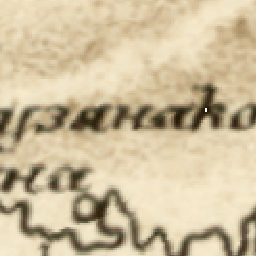 узянако
на